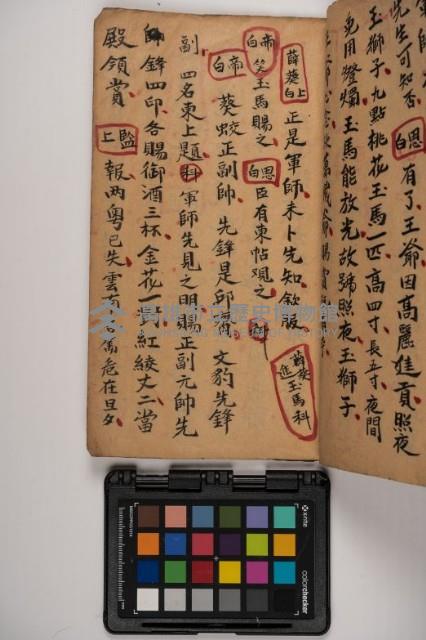 先生可知否
白恩有了王爺因高麗進貢照夜
玉獅子九點桃花玉馬一匹高四寸長五寸夜間
免用燈爛玉馬能放光故號照夜玉獅子
薛葵上白正是軍師未卜先知欽
薛葵進玉馬科
帝白笑玉馬賜之恩白臣有柬帖觀之科
帝白葵蛟正副帥先鋒是邱 文豹先鋒
副四名東上題科軍師先見之明賜正副元帥先
鋒四印各賜御酒三杯金花一對紅綾丈二當
殿領賞監上報兩粵已失雲南 危在旦夕
高雄市立歷史博物館
x-rite
colorchecker